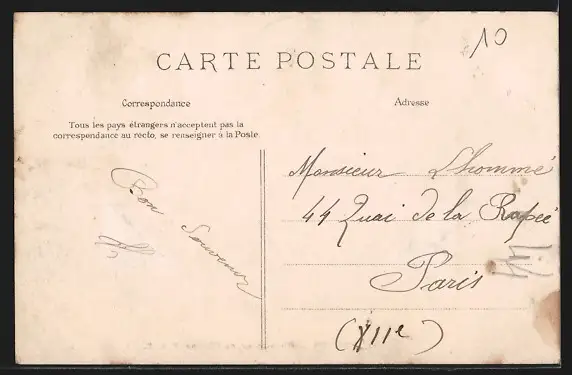 10
CARTE POSTALE
Correspondance
Adresse
Tous les pays étrangers n'acceptent pas la
correspondance au recto, se renseigner à la Poste.
Bon Souvenir
Monsieur Lhommé
44 Quai de la Rapée
Paris
(XIIe)